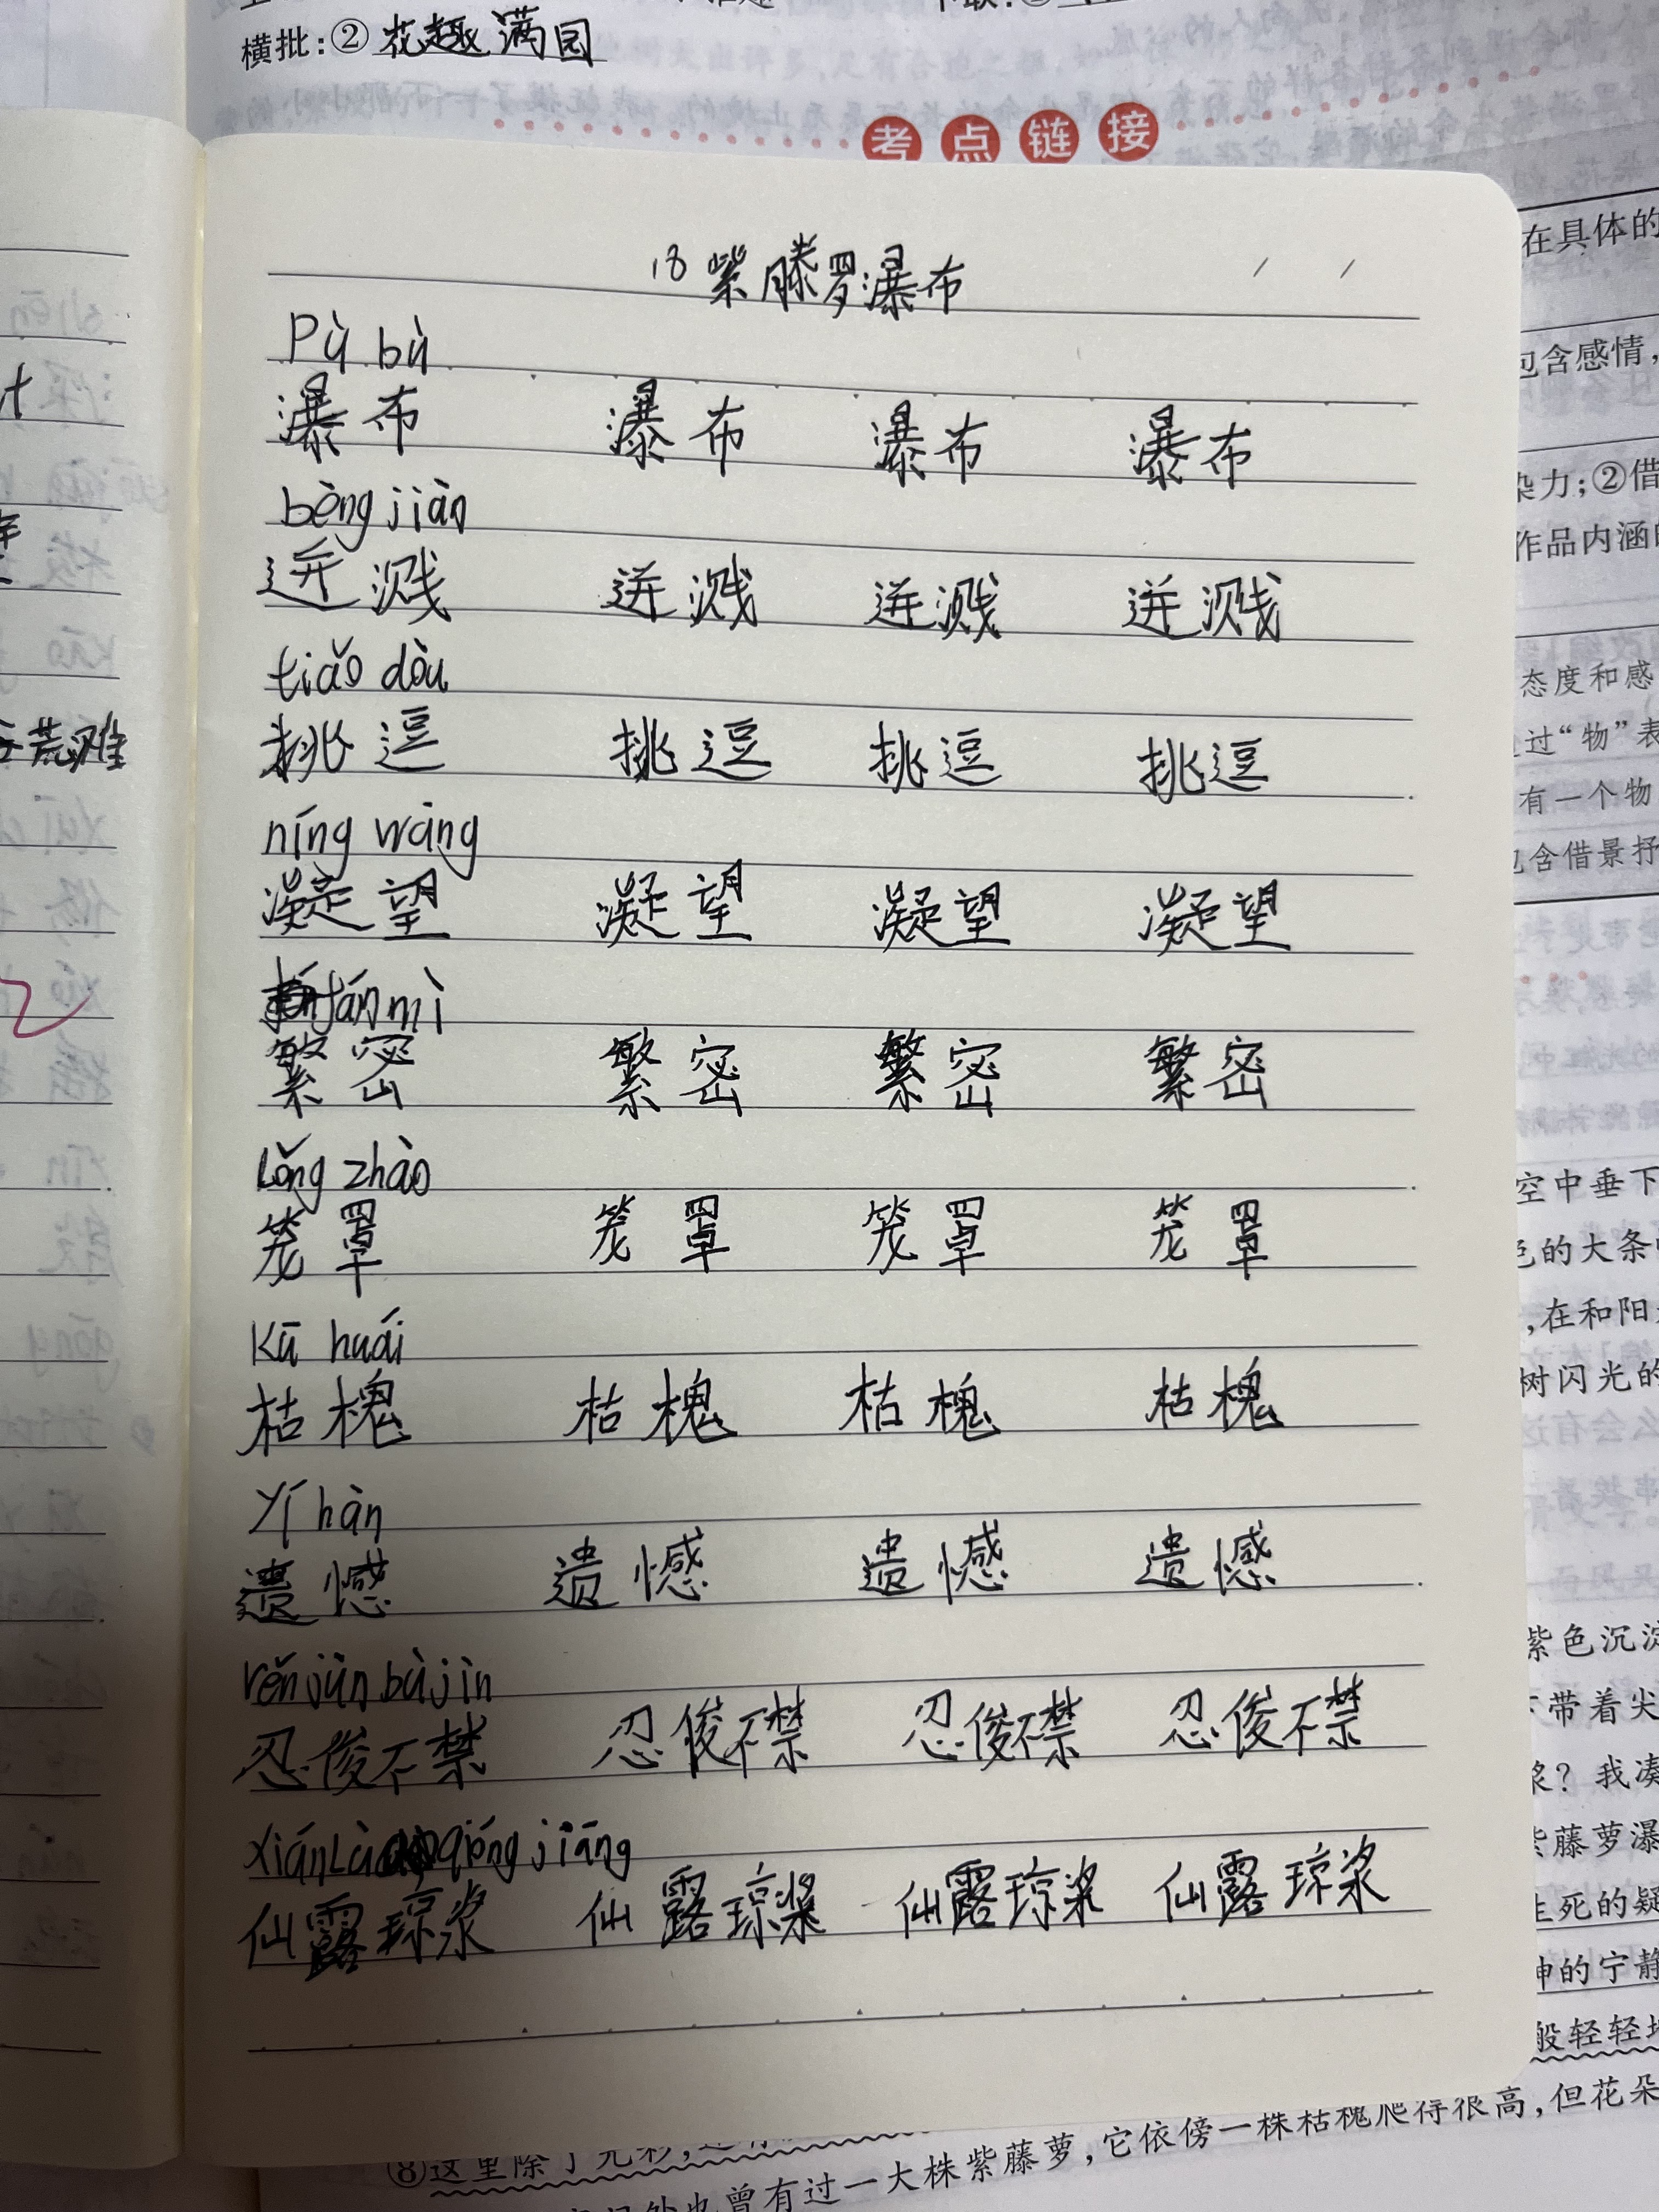 横批:②花趣满园
考点链接
18 紫藤罗瀑布
Pù bù
瀑布 瀑布 瀑布 瀑布
bèng jiàn
迸溅 迸溅 迸溅 迸溅
tiǎo dòu
挑逗 挑逗 挑逗 挑逗
níng wàng
凝望 凝望 凝望 凝望
fán mì
繁密 繁密 繁密 繁密
Lǒng zhào
笼罩 笼罩 笼罩 笼罩
Kū huái
枯槐 枯槐 枯槐 枯槐
Yí hàn
遗憾 遗憾 遗憾 遗憾
rěn jùn bù jìn
忍俊不禁 忍俊不禁 忍俊不禁 忍俊不禁
xián Lù qióng jiāng
仙露琼浆 仙露琼浆 仙露琼浆 仙露琼浆
在具体的
包含感情,
染力;②借
作品内涵
态度和感
过“物”表
有一个物
包含借景抒
空中垂下
色的大条
,在和阳
树闪光的
紫色沉淀
带着尖
浆?我凑
紫藤萝瀑
生死的疑
神的宁静
般轻轻地
⑧这里除了光彩,
曾有过一大株紫藤萝,它依傍一株枯槐爬得很高,但花朵